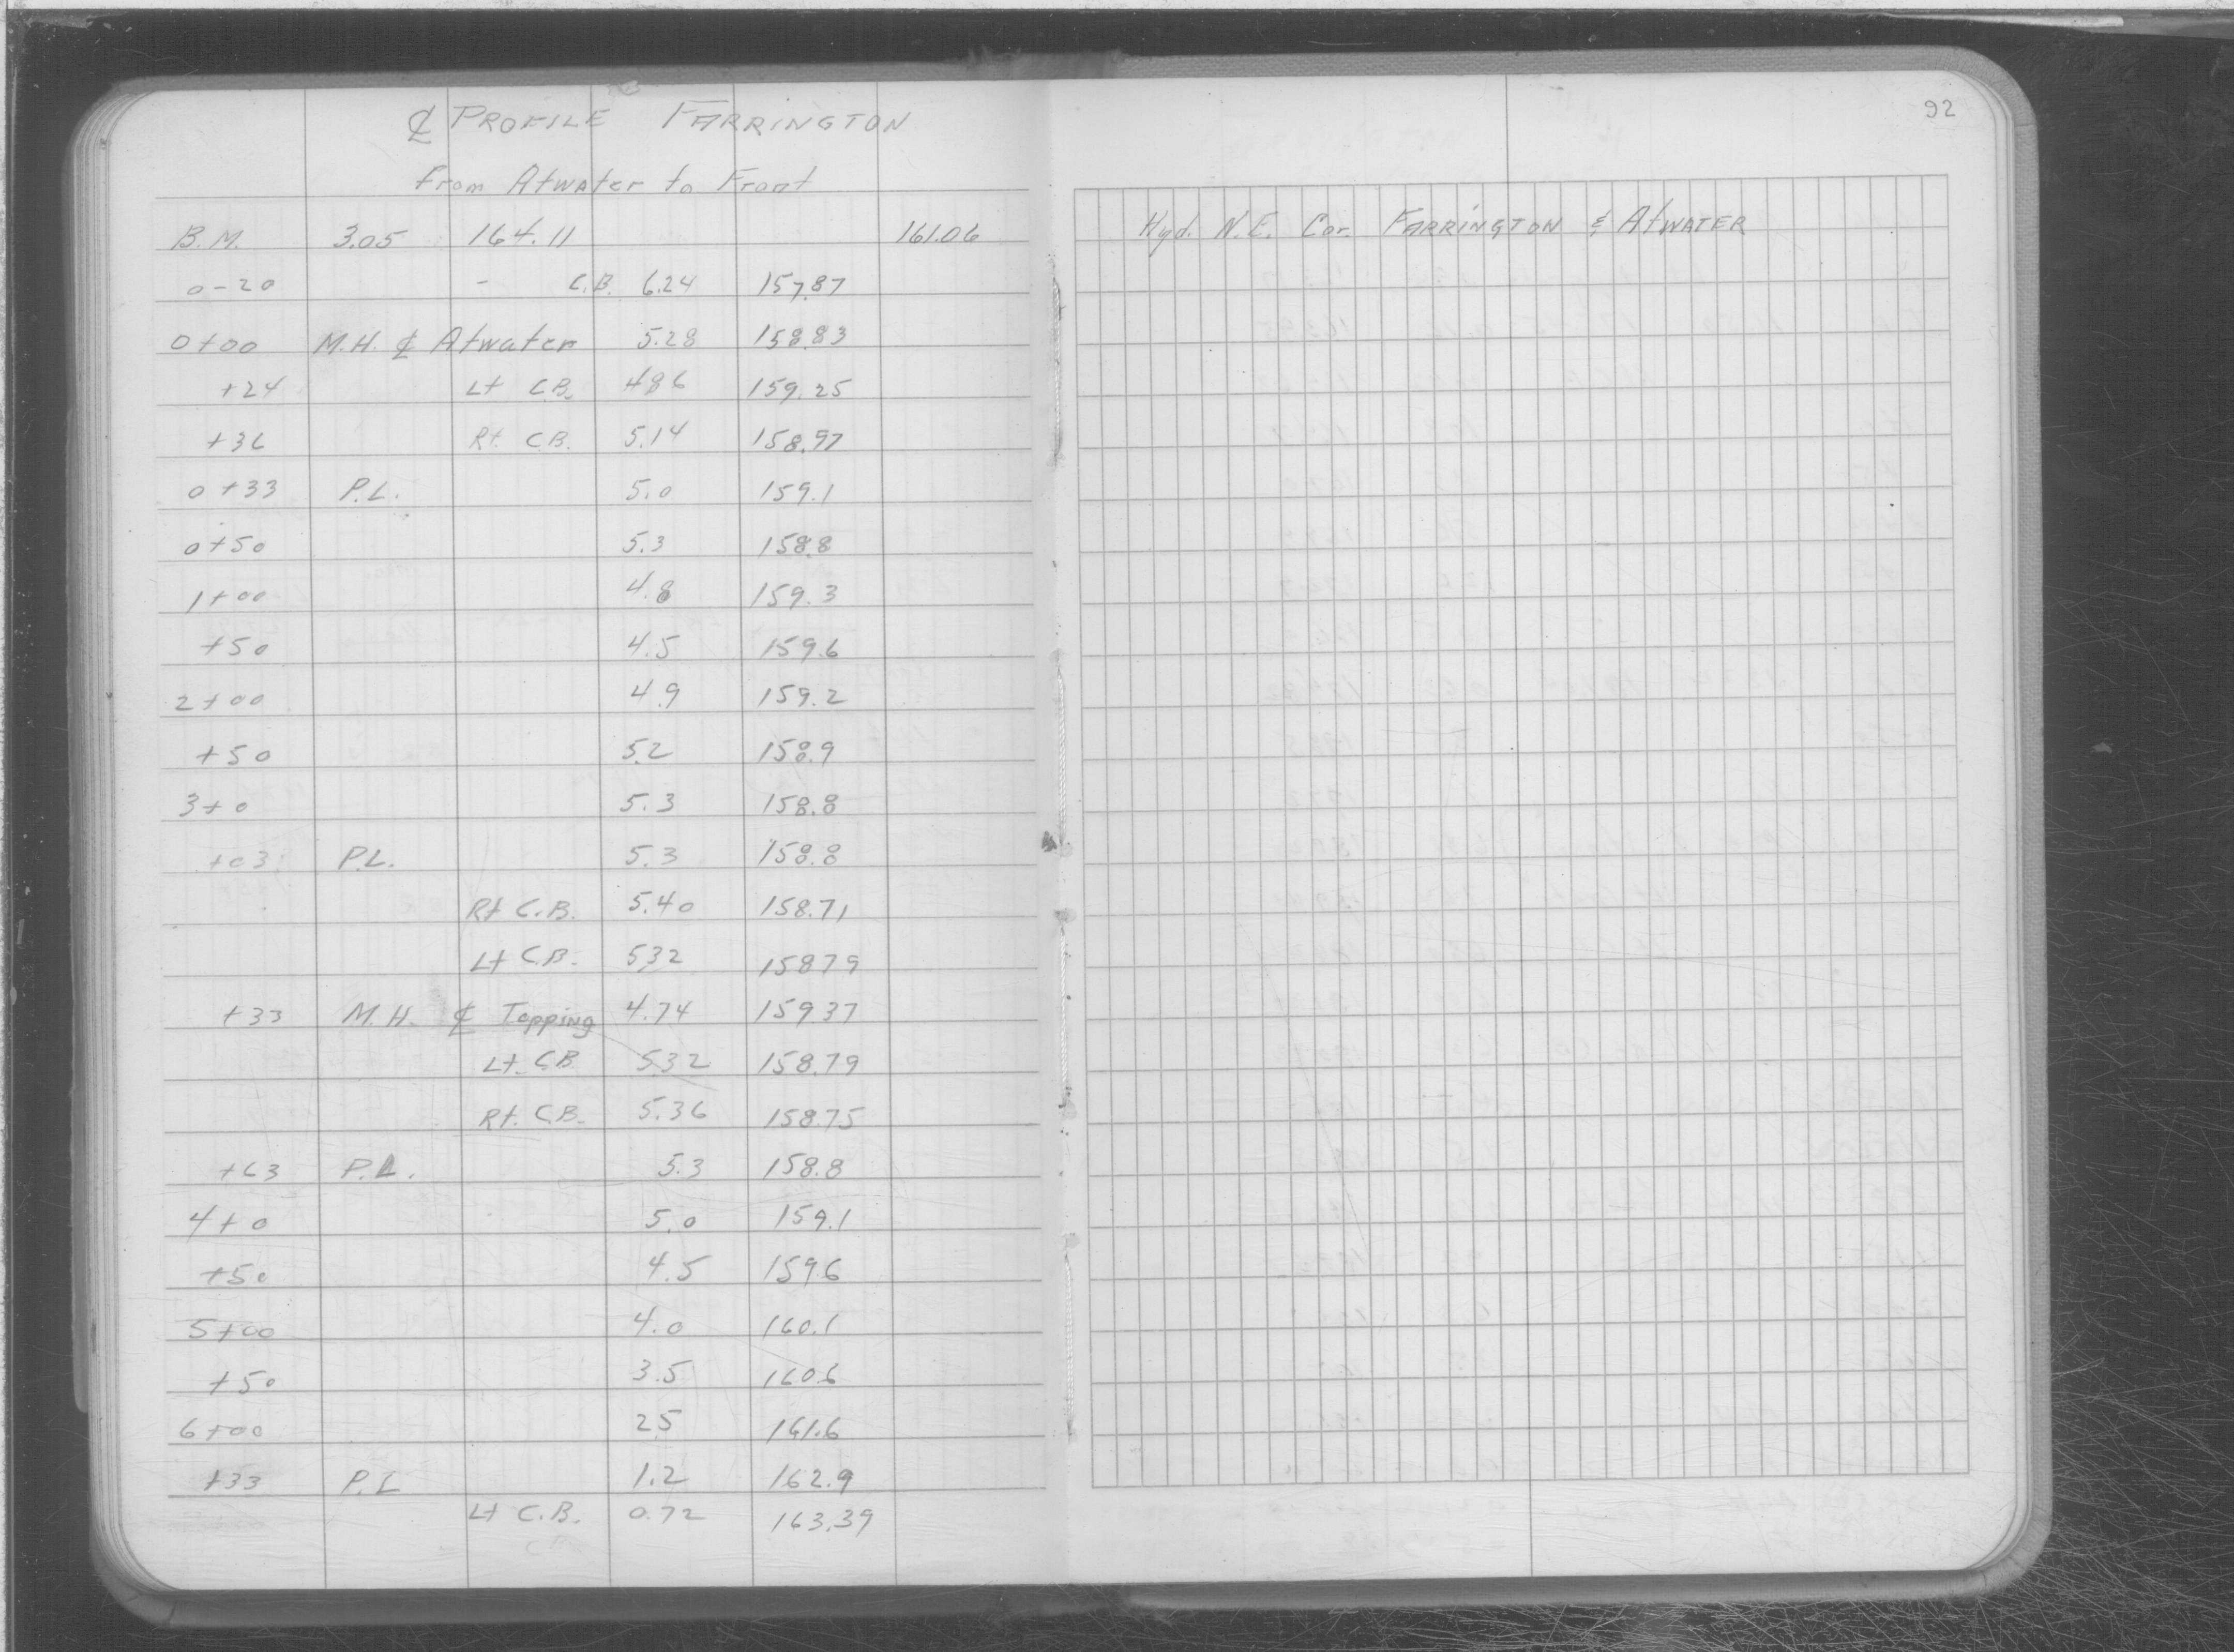 ℄ PROFILE FARRINGTON
from Atwater to Front
B.M. 3.05 164.11 161.06
0-20 - C.B. 6.24 157.87
0+00 M.H. ℄ Atwater 5.28 158.83
+24 Lt C.B. 4.86 159.25
+36 Rt. C.B. 5.14 158.97
0+33 P.L. 5.0 159.1
0+50 5.3 158.8
1+00 4.8 159.3
+50 4.5 159.6
2+00 4.9 159.2
+50 5.2 158.9
3+0 5.3 158.8
+03 P.L. 5.3 158.8
Rt C.B. 5.40 158.71
Lt C.B. 5.32 158.79
+33 M.H. ℄ Topping 4.74 159.37
Lt. C.B. 5.32 158.79
Rt. C.B. 5.36 158.75
+63 P.L. 5.3 158.8
4+0 5.0 159.1
+50 4.5 159.6
5+00 4.0 160.1
+50 3.5 160.6
6+00 2.5 161.6
+33 P.L 1.2 162.9
Lt C.B. 0.72 163.39
92
Hyd. N.E. Cor. FARRINGTON & ATWATER